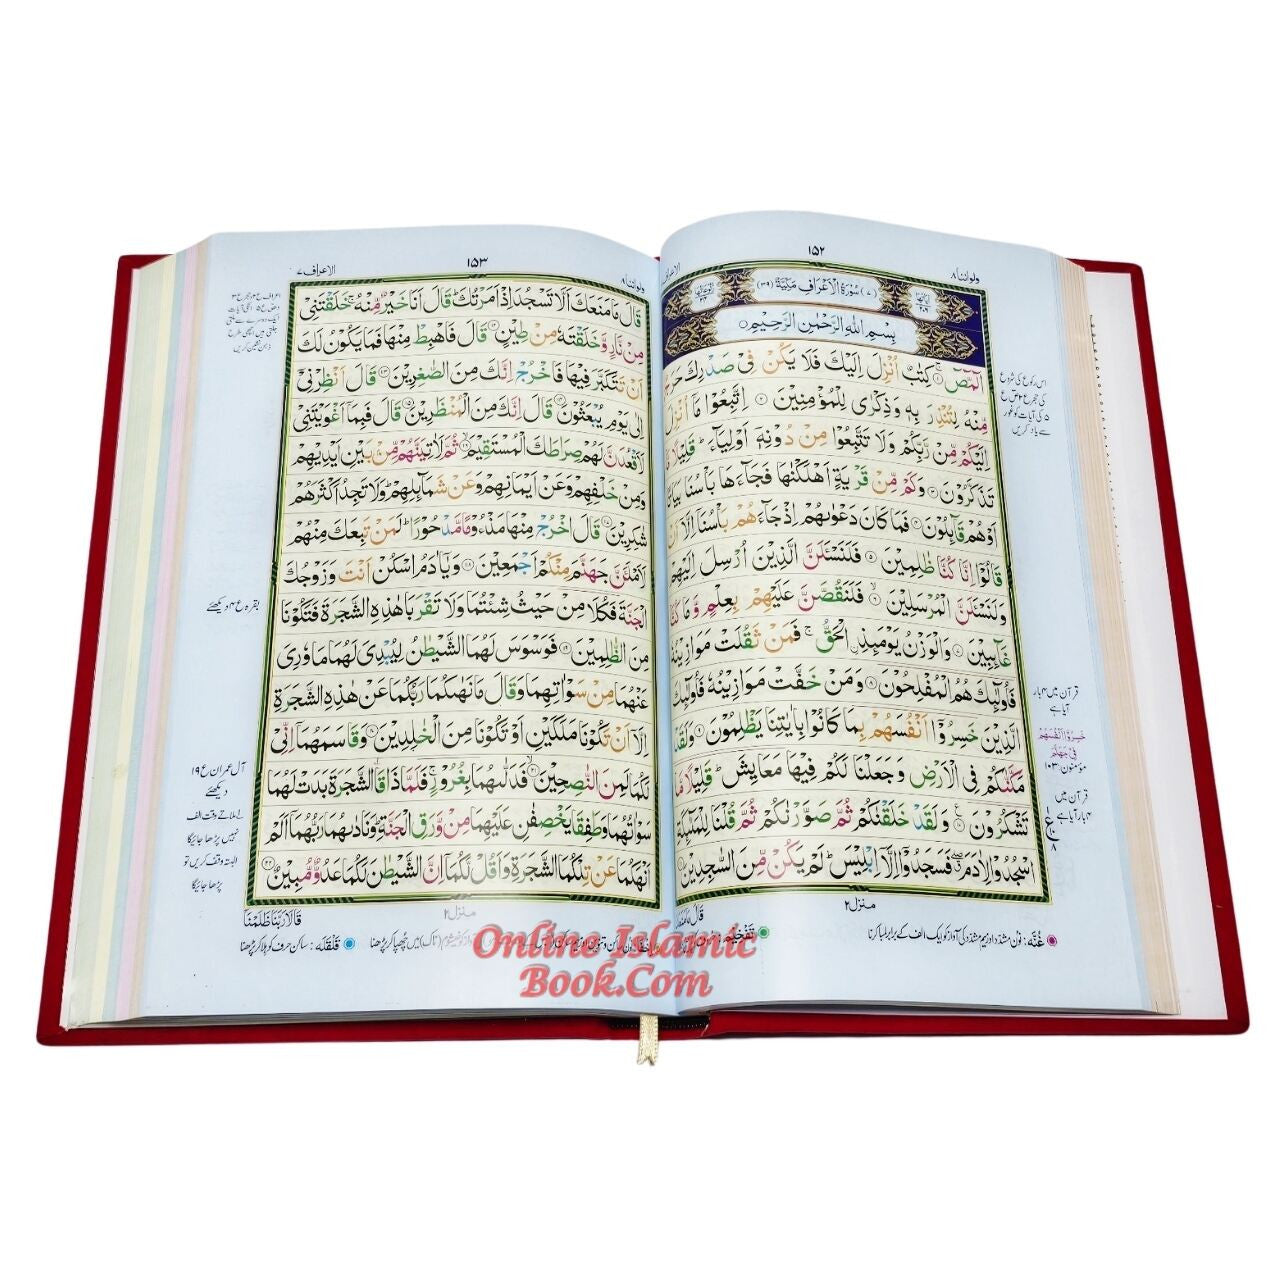 ولواننا ٨
١٥٢
(٧) سُورَةُ الْاَعْرَافِ مَكِّيَّةٌ (٣٩)
بِسْمِ اللهِ الرَّحْمٰنِ الرَّحِيْمِ
الٓمّٓصٓ ۚ كِتٰبٌ اُنْزِلَ اِلَيْكَ فَلَا يَكُنْ فِيْ صَدْرِكَ حَرَجٌ
مِّنْهُ لِتُنْذِرَ بِهٖ وَذِكْرٰى لِلْمُؤْمِنِيْنَ ٢ اِتَّبِعُوْا مَآ اُنْزِلَ
اِلَيْكُمْ مِّنْ رَّبِّكُمْ وَلَا تَتَّبِعُوْا مِنْ دُوْنِهٖٓ اَوْلِيَآءَ ؕ قَلِيْلًا مَّا
تَذَكَّرُوْنَ ٣ وَكَمْ مِّنْ قَرْيَةٍ اَهْلَكْنٰهَا فَجَآءَهَا بَاْسُنَا بَيَاتًا
اَوْ هُمْ قَآئِلُوْنَ ٤ فَمَا كَانَ دَعْوٰىهُمْ اِذْ جَآءَهُمْ بَاْسُنَآ اِلَّآ اَنْ
قَالُوْٓا اِنَّا كُنَّا ظٰلِمِيْنَ ٥ فَلَنَسْـَٔلَنَّ الَّذِيْنَ اُرْسِلَ اِلَيْهِمْ
وَلَنَسْـَٔلَنَّ الْمُرْسَلِيْنَ ٦ فَلَنَقُصَّنَّ عَلَيْهِمْ بِعِلْمٍ وَّمَا كُنَّا
غَآئِبِيْنَ ٧ وَالْوَزْنُ يَوْمَئِذِ اۨلْحَقُّ ۚ فَمَنْ ثَقُلَتْ مَوَازِيْنُهٗ
فَاُولٰٓئِكَ هُمُ الْمُفْلِحُوْنَ ٨ وَمَنْ خَفَّتْ مَوَازِيْنُهٗ فَاُولٰٓئِكَ
الَّذِيْنَ خَسِرُوْٓا اَنْفُسَهُمْ بِمَا كَانُوْا بِاٰيٰتِنَا يَظْلِمُوْنَ ٩ وَلَقَدْ
مَكَّنّٰكُمْ فِي الْاَرْضِ وَجَعَلْنَا لَكُمْ فِيْهَا مَعَايِشَ ؕ قَلِيْلًا مَّا
تَشْكُرُوْنَ ١٠ وَلَقَدْ خَلَقْنٰكُمْ ثُمَّ صَوَّرْنٰكُمْ ثُمَّ قُلْنَا لِلْمَلٰٓئِكَةِ
اسْجُدُوْا لِاٰدَمَ ۖ فَسَجَدُوْٓا اِلَّآ اِبْلِيْسَ ؕ لَمْ يَكُنْ مِّنَ السّٰجِدِيْنَ ١١
منزل ٢
اس رکوع کی شروع
۵ کی آیات کو غور
سے یاد کریں
قرآن میں ۴ بار
آیا ہے
خَسِرُوْٓا اَنْفُسَهُمْ
فِيْ جَهَنَّمَ
مؤمنون: ١٠٣
قرآن میں
۴ بار آیا ہے
غُنَّه: نون مشدّد اور میم مشدّد کی آواز کو ایک الف کے برابر لمبا کرنا
تَفْخِيْم:
الاعراف ٧
١٥٣
ولواننا ٨
قَالَ مَا مَنَعَكَ اَلَّا تَسْجُدَ اِذْ اَمَرْتُكَ ؕ قَالَ اَنَا خَيْرٌ مِّنْهُ ۚ خَلَقْتَنِيْ
مِنْ نَّارٍ وَّخَلَقْتَهٗ مِنْ طِيْنٍ ١٢ قَالَ فَاهْبِطْ مِنْهَا فَمَا يَكُوْنُ لَكَ
اَنْ تَتَكَبَّرَ فِيْهَا فَاخْرُجْ اِنَّكَ مِنَ الصّٰغِرِيْنَ ١٣ قَالَ اَنْظِرْنِيْٓ
اِلٰى يَوْمِ يُبْعَثُوْنَ ١٤ قَالَ اِنَّكَ مِنَ الْمُنْظَرِيْنَ ١٥ قَالَ فَبِمَآ اَغْوَيْتَنِيْ
لَاَقْعُدَنَّ لَهُمْ صِرَاطَكَ الْمُسْتَقِيْمَ ١٦ ثُمَّ لَاٰتِيَنَّهُمْ مِّنْ بَيْنِ اَيْدِيْهِمْ
وَمِنْ خَلْفِهِمْ وَعَنْ اَيْمَانِهِمْ وَعَنْ شَمَآئِلِهِمْ ؕ وَلَا تَجِدُ اَكْثَرَهُمْ
شٰكِرِيْنَ ١٧ قَالَ اخْرُجْ مِنْهَا مَذْءُوْمًا مَّدْحُوْرًا ؕ لَمَنْ تَبِعَكَ مِنْهُمْ
لَاَمْلَـَٔنَّ جَهَنَّمَ مِنْكُمْ اَجْمَعِيْنَ ١٨ وَيٰٓاٰدَمُ اسْكُنْ اَنْتَ وَزَوْجُكَ
الْجَنَّةَ فَكُلَا مِنْ حَيْثُ شِئْتُمَا وَلَا تَقْرَبَا هٰذِهِ الشَّجَرَةَ فَتَكُوْنَا
مِنَ الظّٰلِمِيْنَ ١٩ فَوَسْوَسَ لَهُمَا الشَّيْطٰنُ لِيُبْدِيَ لَهُمَا مَا وٗرِيَ
عَنْهُمَا مِنْ سَوْاٰتِهِمَا وَقَالَ مَا نَهٰىكُمَا رَبُّكُمَا عَنْ هٰذِهِ الشَّجَرَةِ
اِلَّآ اَنْ تَكُوْنَا مَلَكَيْنِ اَوْ تَكُوْنَا مِنَ الْخٰلِدِيْنَ ٢٠ وَقَاسَمَهُمَآ اِنِّيْ
لَكُمَا لَمِنَ النّٰصِحِيْنَ ٢١ فَدَلّٰىهُمَا بِغُرُوْرٍ ۚ فَلَمَّا ذَاقَا الشَّجَرَةَ بَدَتْ لَهُمَا
سَوْاٰتُهُمَا وَطَفِقَا يَخْصِفٰنِ عَلَيْهِمَا مِنْ وَّرَقِ الْجَنَّةِ ؕ وَنَادٰىهُمَا رَبُّهُمَآ اَلَمْ
اَنْهَكُمَا عَنْ تِلْكُمَا الشَّجَرَةِ وَاَقُلْ لَّكُمَآ اِنَّ الشَّيْطٰنَ لَكُمَا عَدُوٌّ مُّبِيْنٌ ٢٢
منزل ٢
قَالَا رَبَّنَا ظَلَمْنَآ
بقرہ ع ۴ دیکھئے
آل عمران ع ١٩
دیکھئے
لے ملاتے وقت الف
نہیں پڑھا جائیگا
البتہ وقف کریں تو
پڑھا جائیگا
قَلْقَلَه: ساکن حرف کو ہلا کر پڑھنا
Online Islamic
Book.Com